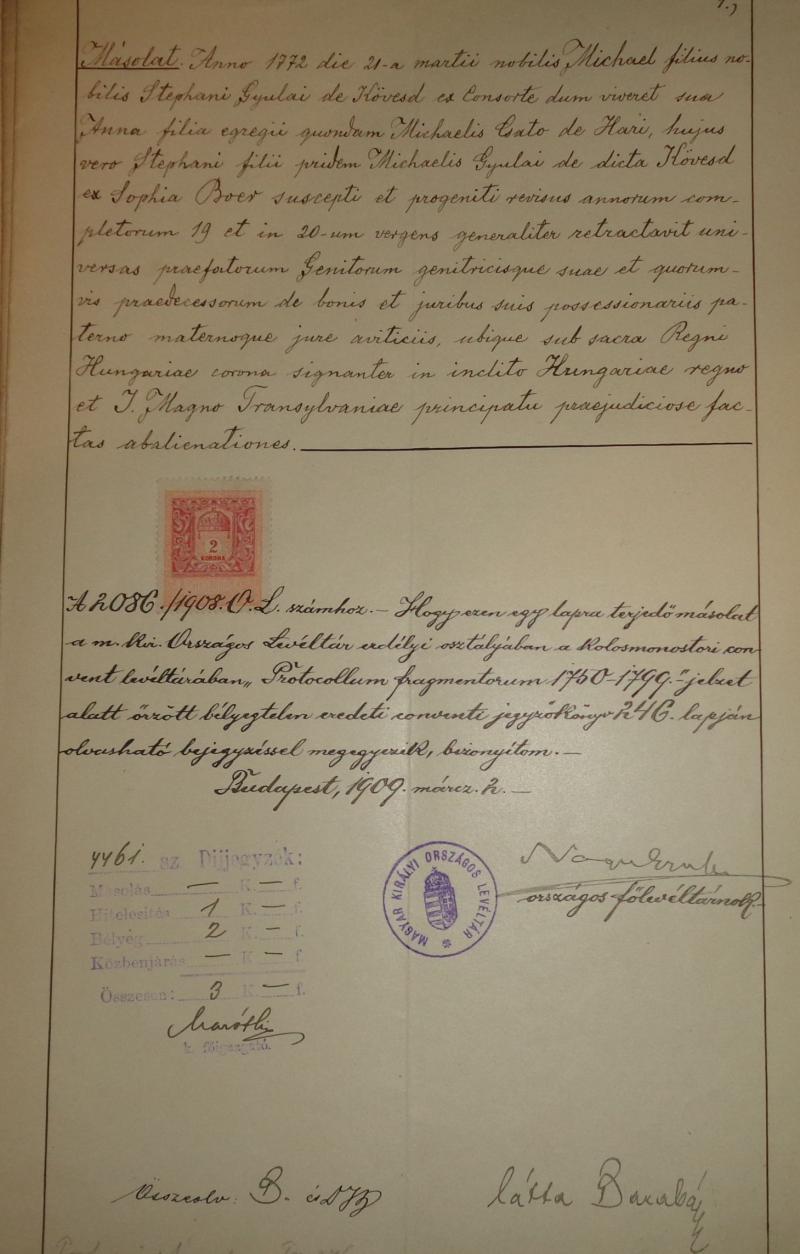 1.)
Másolat. Anno 1772 die 21-a martii nobilis Michael filius no-
bilis Stephani Gyulai de Kövesd ex Consorte dum viveret sua
Anna filia egregii quondam Michaelis Csato de Hari, hujus
vero Stephani filii pridem Michaelis Gyulai de dicta Kövesd
ex Sophia Boer suscepti et progeniti revisus annorum com-
pletorum 19 et in 20-um vergens generaliter retractavit uni-
versas praefatorum Genitorum genitricisque suae et quorum-
vis praedecessorum de bonis et juribus suis possessionariis pa-
terno maternoque jure aviticiis, ubique sub sacra Regni
Hungariae corona signanter in inclito Hungariae regno
et I. Magno Transylvaniae principatu praejudiciose fac-
tas abalienationes.
2
KORONA
A 2086./1908. O. L. számhoz. – Hogy ezen egy lapra terjedő másolat
a m. kir. Országos Levéltár erdélyi osztályában a kolosmonostori con-
vent levéltárában „Protocollum fragmentorum 1750-1799." jelzet
alatt őrzött bélyegtelen eredeti conventi jegyzőkönyv 246. lapján
olvasható bejegyzéssel megegyezik, bizonyítom. –
Budapest, 1909. márcz. 2. –
4461. sz Díjjegyzék:
Másolás — K. — f.
Hitelesítés 1 K. — f.
Bélyeg 2 K. — f.
Közbenjárás — K. — f.
Összesen: 3 K. — f.
k. főigazgató.
MAGYAR KIRÁLYI ORSZÁGOS LEVÉLTÁR
országos főlevéltárnok
Összeolv. B. és
látta Barabás